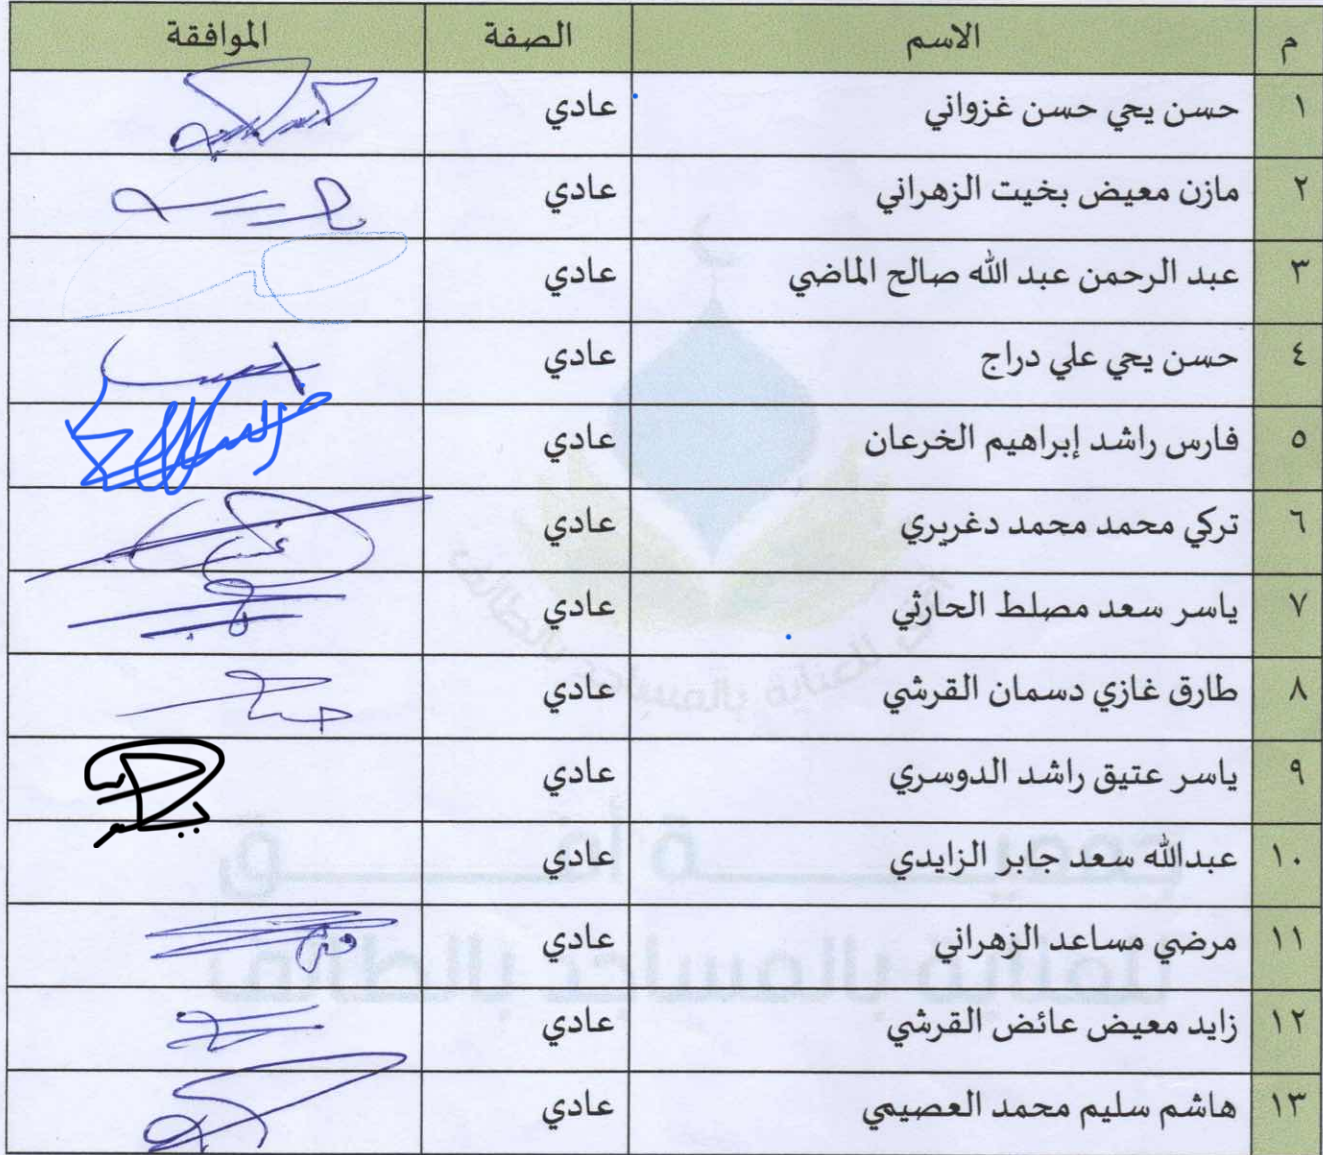 م الاسم الصفة الموافقة
١ حسن يحي حسن غزواني عادي
٢ مازن معيض بخيت الزهراني عادي
٣ عبد الرحمن عبد الله صالح الماضي عادي
٤ حسن يحي علي دراج عادي
٥ فارس راشد إبراهيم الخرعان عادي
٦ تركي محمد محمد دغريري عادي
٧ ياسر سعد مصلط الحارثي عادي
٨ طارق غازي دسمان القرشي عادي
٩ ياسر عتيق راشد الدوسري عادي
١٠ عبدالله سعد جابر الزايدي عادي
١١ مرضي مساعد الزهراني عادي
١٢ زايد معيض عائض القرشي عادي
١٣ هاشم سليم محمد العصيمي عادي